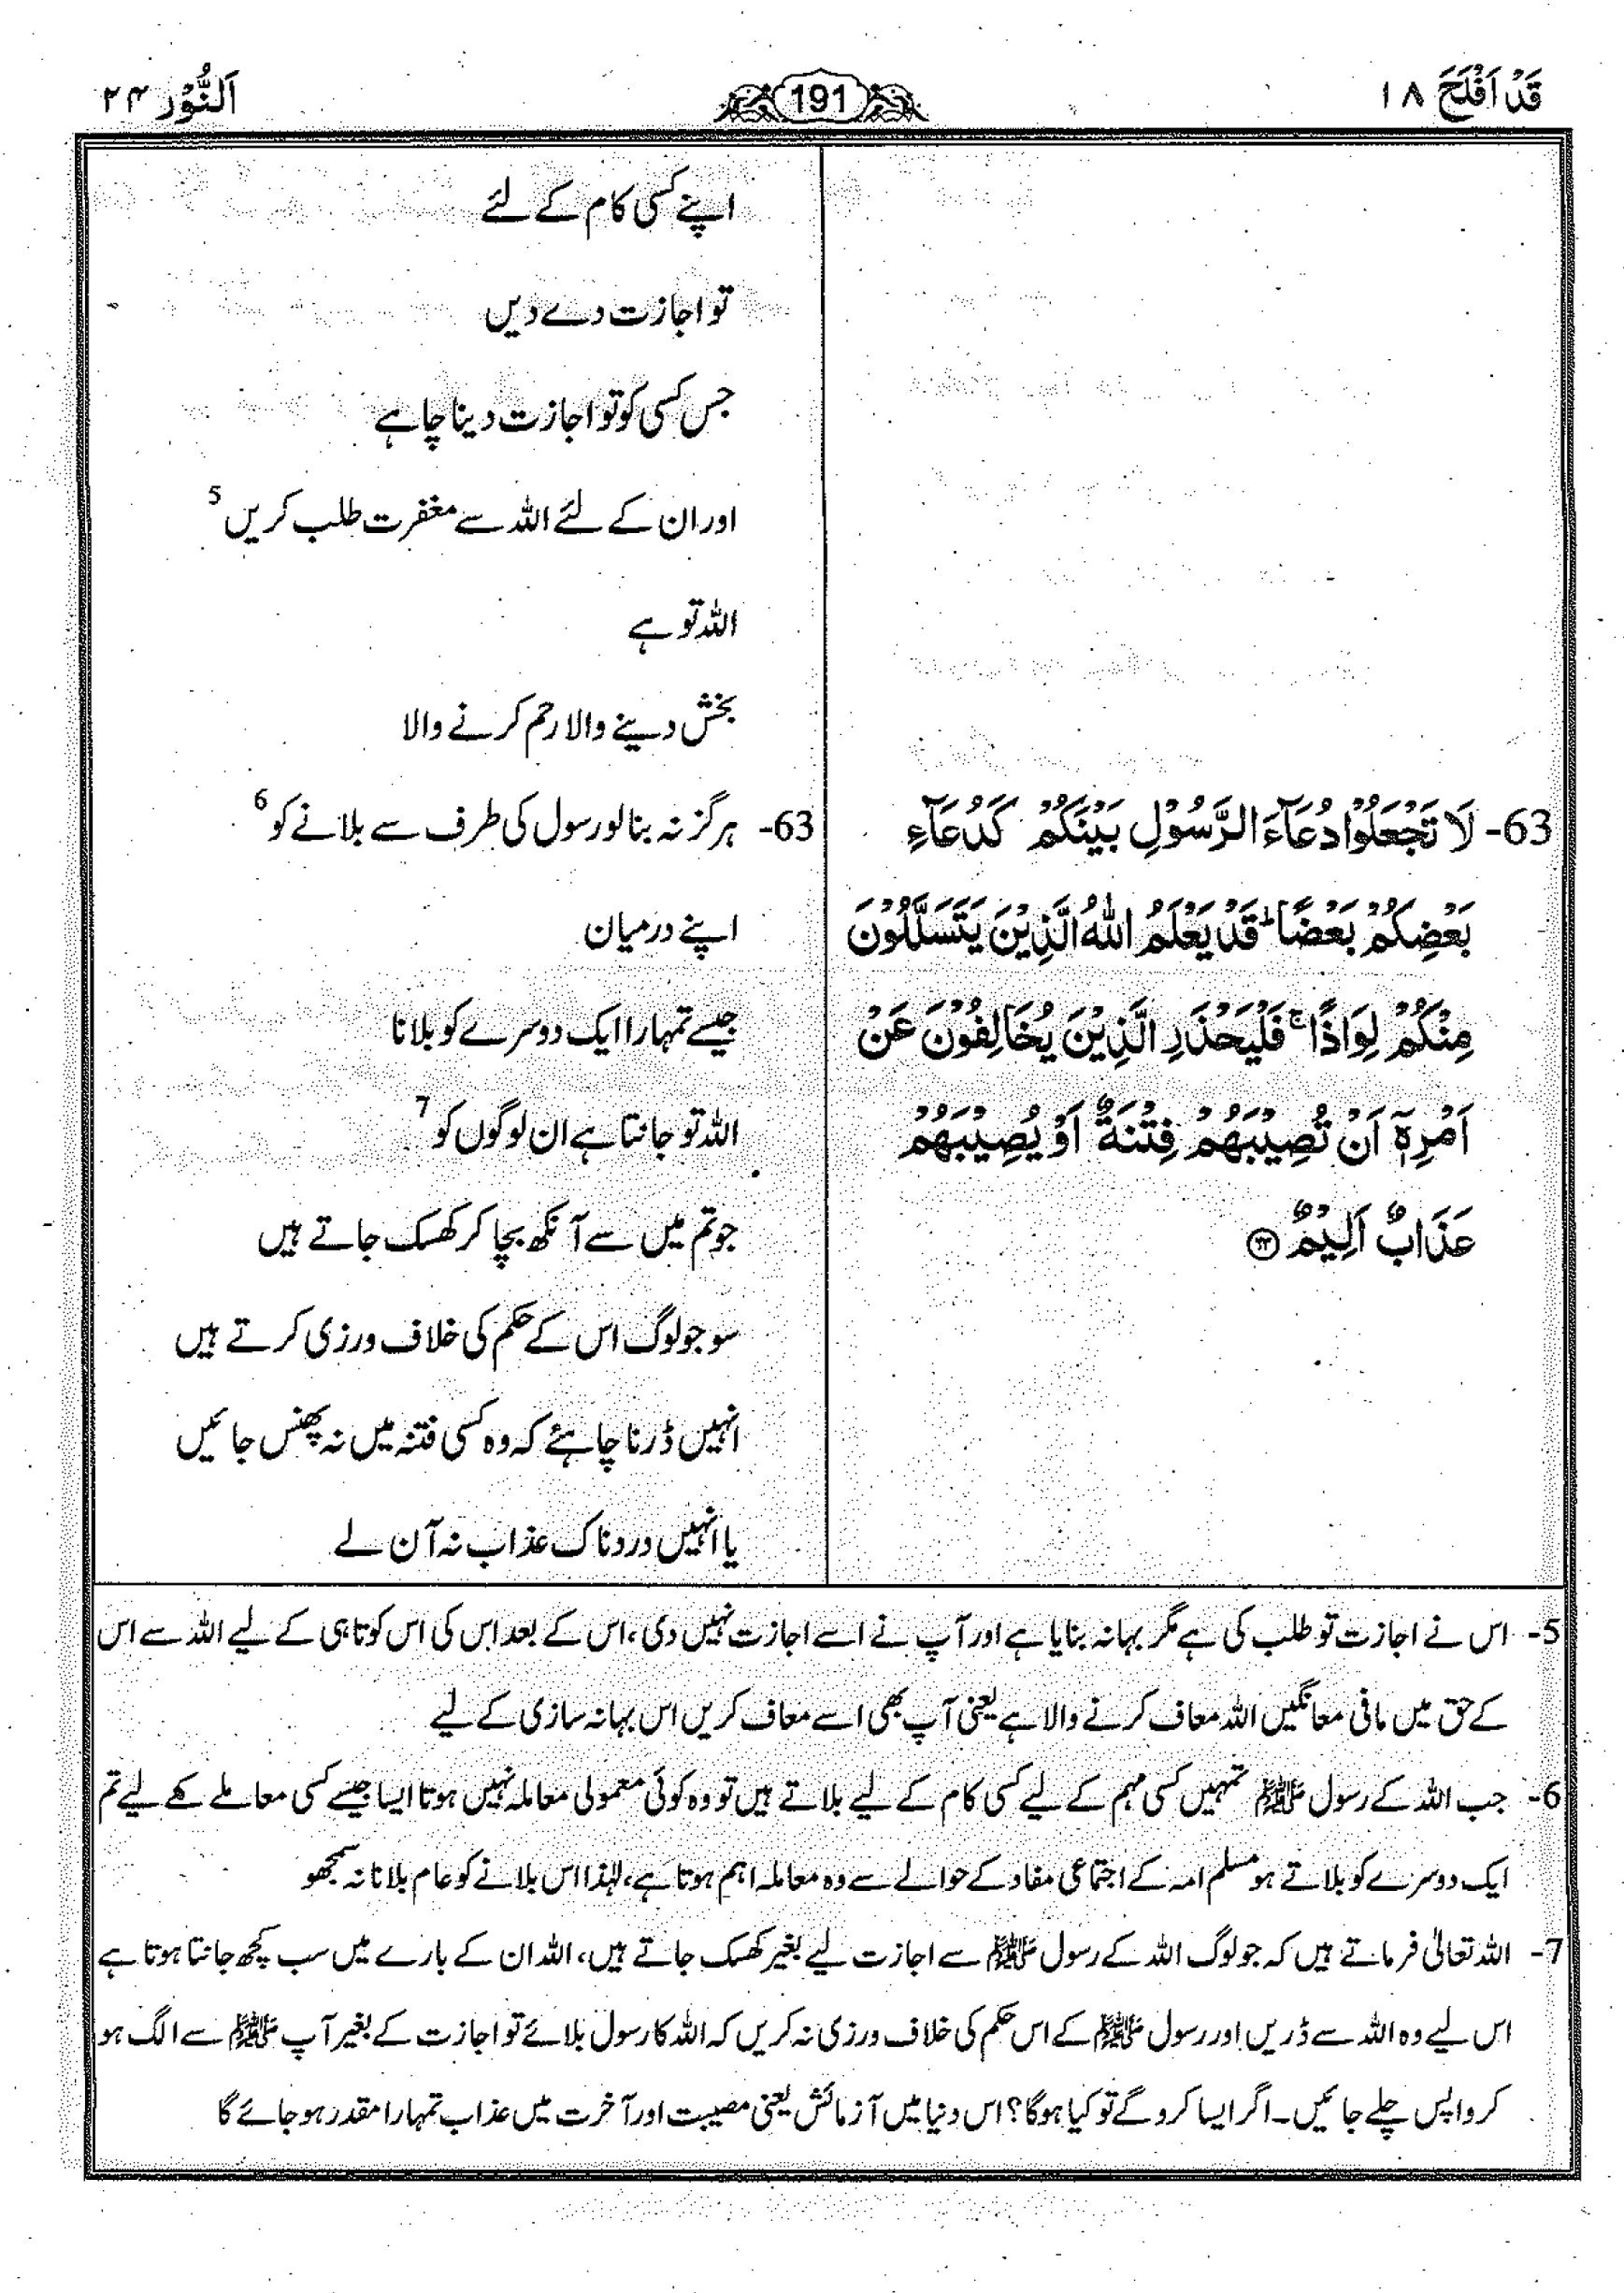 قَدْ اَفْلَحَ ۱۸
191
اَلنُّوْر ۲۴
63- لَا تَجْعَلُوْا دُعَآءَ الرَّسُوْلِ بَيْنَكُمْ كَدُعَآءِ
بَعْضِكُمْ بَعْضًا ؕ قَدْ يَعْلَمُ اللّٰهُ الَّذِيْنَ يَتَسَلَّلُوْنَ
مِنْكُمْ لِوَاذًا ۚ فَلْيَحْذَرِ الَّذِيْنَ يُخَالِفُوْنَ عَنْ
اَمْرِهٖۤ اَنْ تُصِيْبَهُمْ فِتْنَةٌ اَوْ يُصِيْبَهُمْ
عَذَابٌ اَلِيْمٌ ۶۳
اپنے کسی کام کے لئے
تو اجازت دے دیں
جس کسی کو تو اجازت دینا چاہے
اور ان کے لئے اللہ سے مغفرت طلب کریں 5
اللہ تو ہے
بخش دینے والا رحم کرنے والا
63- ہرگز نہ بنا لو رسول کی طرف سے بلانے کو 6
اپنے درمیان
جیسے تمہارا ایک دوسرے کو بلانا
اللہ تو جانتا ہے ان لوگوں کو 7
جو تم میں سے آنکھ بچا کر کھسک جاتے ہیں
سو جو لوگ اس کے حکم کی خلاف ورزی کرتے ہیں
انہیں ڈرنا چاہئے کہ وہ کسی فتنہ میں نہ پھنس جائیں
یا انہیں دردناک عذاب نہ آن لے
5- اس نے اجازت تو طلب کی ہے مگر بہانہ بنایا ہے اور آپ نے اسے اجازت نہیں دی، اس کے بعد اس کی اس کوتاہی کے لیے اللہ سے اس
کے حق میں مافی معانگیں اللہ معاف کرنے والا ہے یعنی آپ بھی اسے معاف کریں اس بہانہ سازی کے لیے
6- جب اللہ کے رسول ﷺ تمہیں کسی مہم کے لیے کسی کام کے لیے بلاتے ہیں تو وہ کوئی معمولی معاملہ نہیں ہوتا ایسا جیسے کسی معاملے کے لیے تم
ایک دوسرے کو بلاتے ہو مسلم امہ کے اجتماعی مفاد کے حوالے سے وہ معاملہ اہم ہوتا ہے، لہٰذا اس بلانے کو عام بلانا نہ سمجھو
7- اللہ تعالیٰ فرماتے ہیں کہ جو لوگ اللہ کے رسول ﷺ سے اجازت لیے بغیر کھسک جاتے ہیں، اللہ ان کے بارے میں سب کچھ جانتا ہوتا ہے
اس لیے وہ اللہ سے ڈریں اور رسول ﷺ کے اس حکم کی خلاف ورزی نہ کریں کہ اللہ کا رسول بلائے تو اجازت کے بغیر آپ ﷺ سے الگ ہو
کر واپس چلے جائیں۔ اگر ایسا کرو گے تو کیا ہوگا؟ اس دنیا میں آزمائش یعنی مصیبت اور آخرت میں عذاب تمہارا مقدر ہو جائے گا